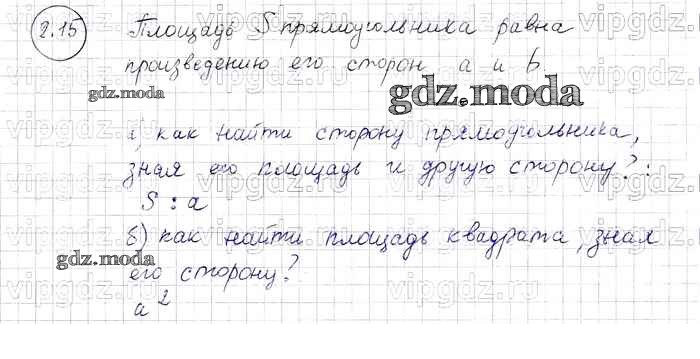 2.15 Площадь S прямоугольника равна
произведению его сторон a и b.
gdz.moda
gdz.moda
а) как найти сторону прямоугольника,
зная его площадь и другую сторону? :
S : a
б) как найти площадь квадрата, зная
gdz.moda
его сторону?
a²